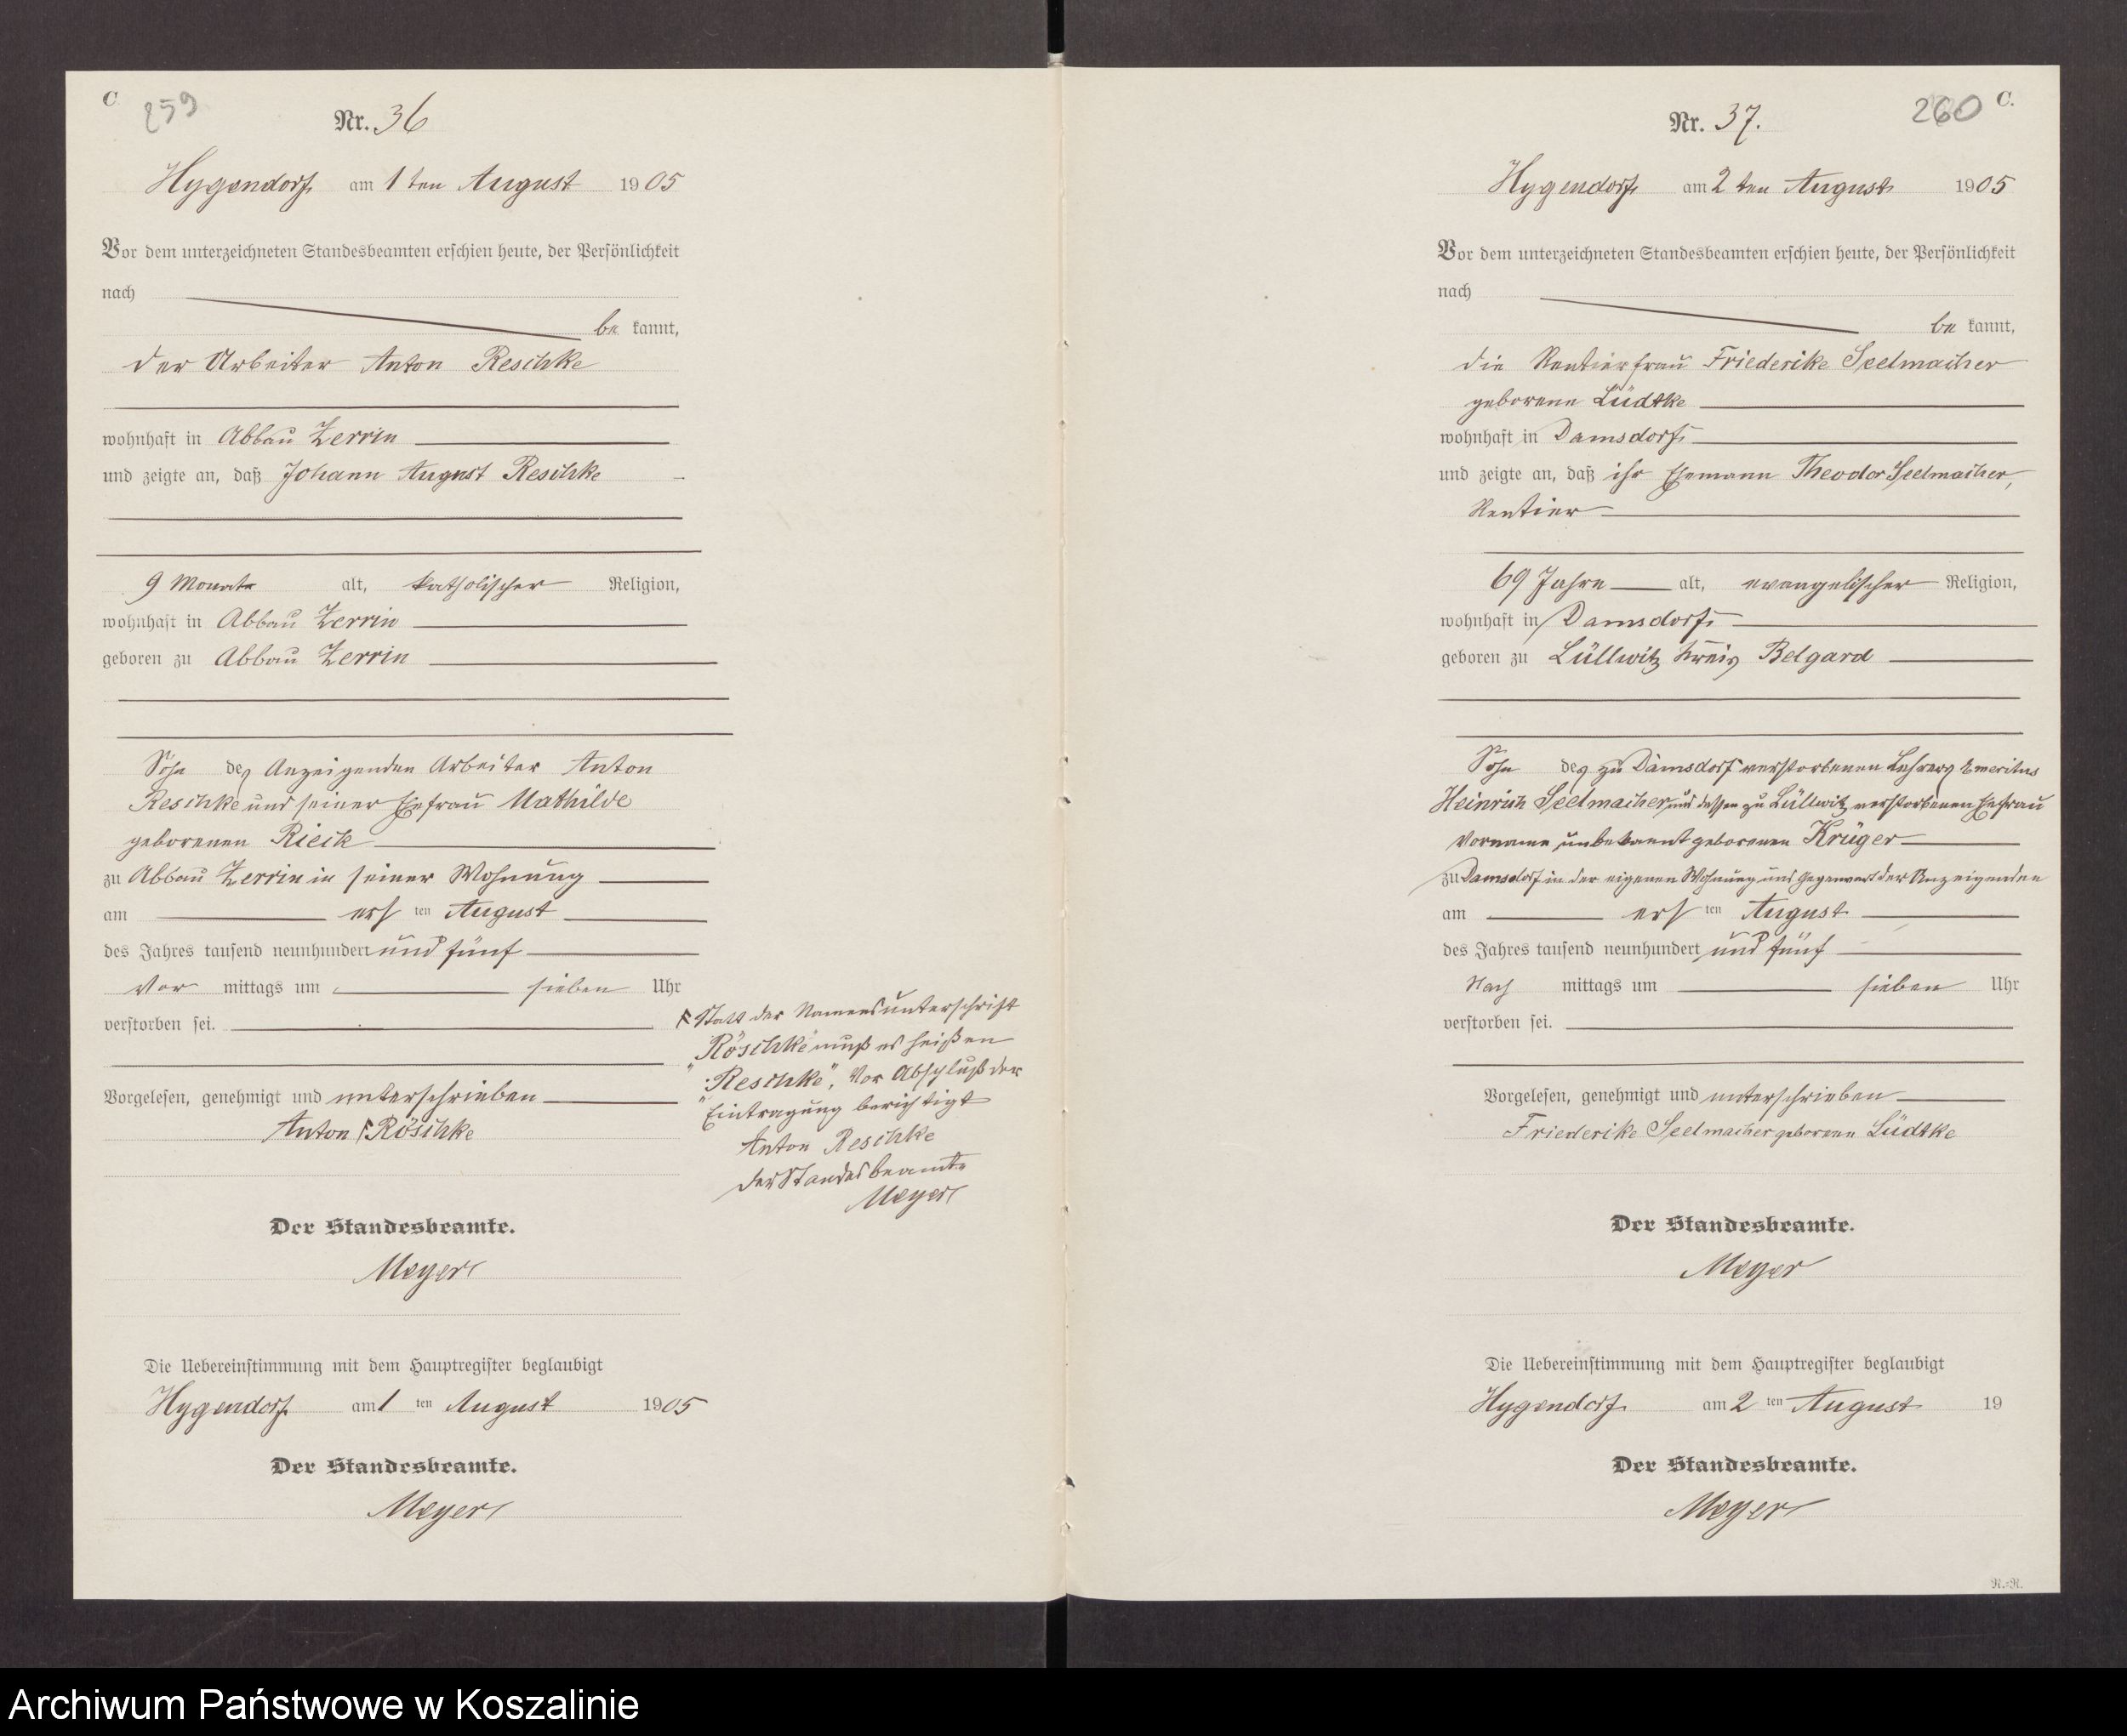 C
259
Nr. 36
Hygendorf am 1ten August 1905
Vor dem unterzeichneten Standesbeamten erschien heute, der Persönlichkeit
nach
be kannt,
der Arbeiter Anton Reschke
wohnhaft in Abbau Zerrin
und zeigte an, daß Johann August Reschke
9 Monate alt, katholischer Religion,
wohnhaft in Abbau Zerrin
geboren zu Abbau Zerrin
Sohn des Anzeigenden Arbeiter Anton
Reschke und seiner Ehefrau Mathilde
geborenen Rieck
zu Abbau Zerrin in seiner Wohnung
am ersten August
des Jahres tausend neunhundert und fünf
Vor mittags um sieben Uhr
verstorben sei.
Vorgelesen, genehmigt und unterschrieben
Anton Röschke
Statt der Namensunterschrift
"Röschke" muß es heißen
"Reschke". Vor Abschluß der
Eintragung berichtigt
Anton Reschke
Der Standesbeamte
Meyer
Der Standesbeamte.
Meyer
Die Uebereinstimmung mit dem Hauptregister beglaubigt
Hygendorf am 1ten August 1905
Der Standesbeamte.
Meyer
260 C.
Nr. 37.
Hygendorf am 2ten August 1905
Vor dem unterzeichneten Standesbeamten erschien heute, der Persönlichkeit
nach
be kannt,
die Rentierfrau Friederike Seelmacher
geborene Lüdtke
wohnhaft in Damsdorf
und zeigte an, daß ihr Ehemann Theodor Seelmacher,
Rentier
69 Jahre alt, evangelischer Religion,
wohnhaft in Damsdorf
geboren zu Lüllwitz Kreis Belgard
Sohn des zu Damsdorf verstorbenen Lehrers Emeritus
Heinrich Seelmacher und dessen zu Lüllwitz verstorbenen Ehefrau
Vorname unbekannt geborenen Krüger
zu Damsdorf in der eigenen Wohnung und Gegenwart der Anzeigenden
am ersten August
des Jahres tausend neunhundert und fünf
Nach mittags um sieben Uhr
verstorben sei.
Vorgelesen, genehmigt und unterschrieben
Friederike Seelmacher geborene Lüdtke
Der Standesbeamte.
Meyer
Die Uebereinstimmung mit dem Hauptregister beglaubigt
Hygendorf am 2ten August 19
Der Standesbeamte.
Meyer
R.=R.
Archiwum Państwowe w Koszalinie